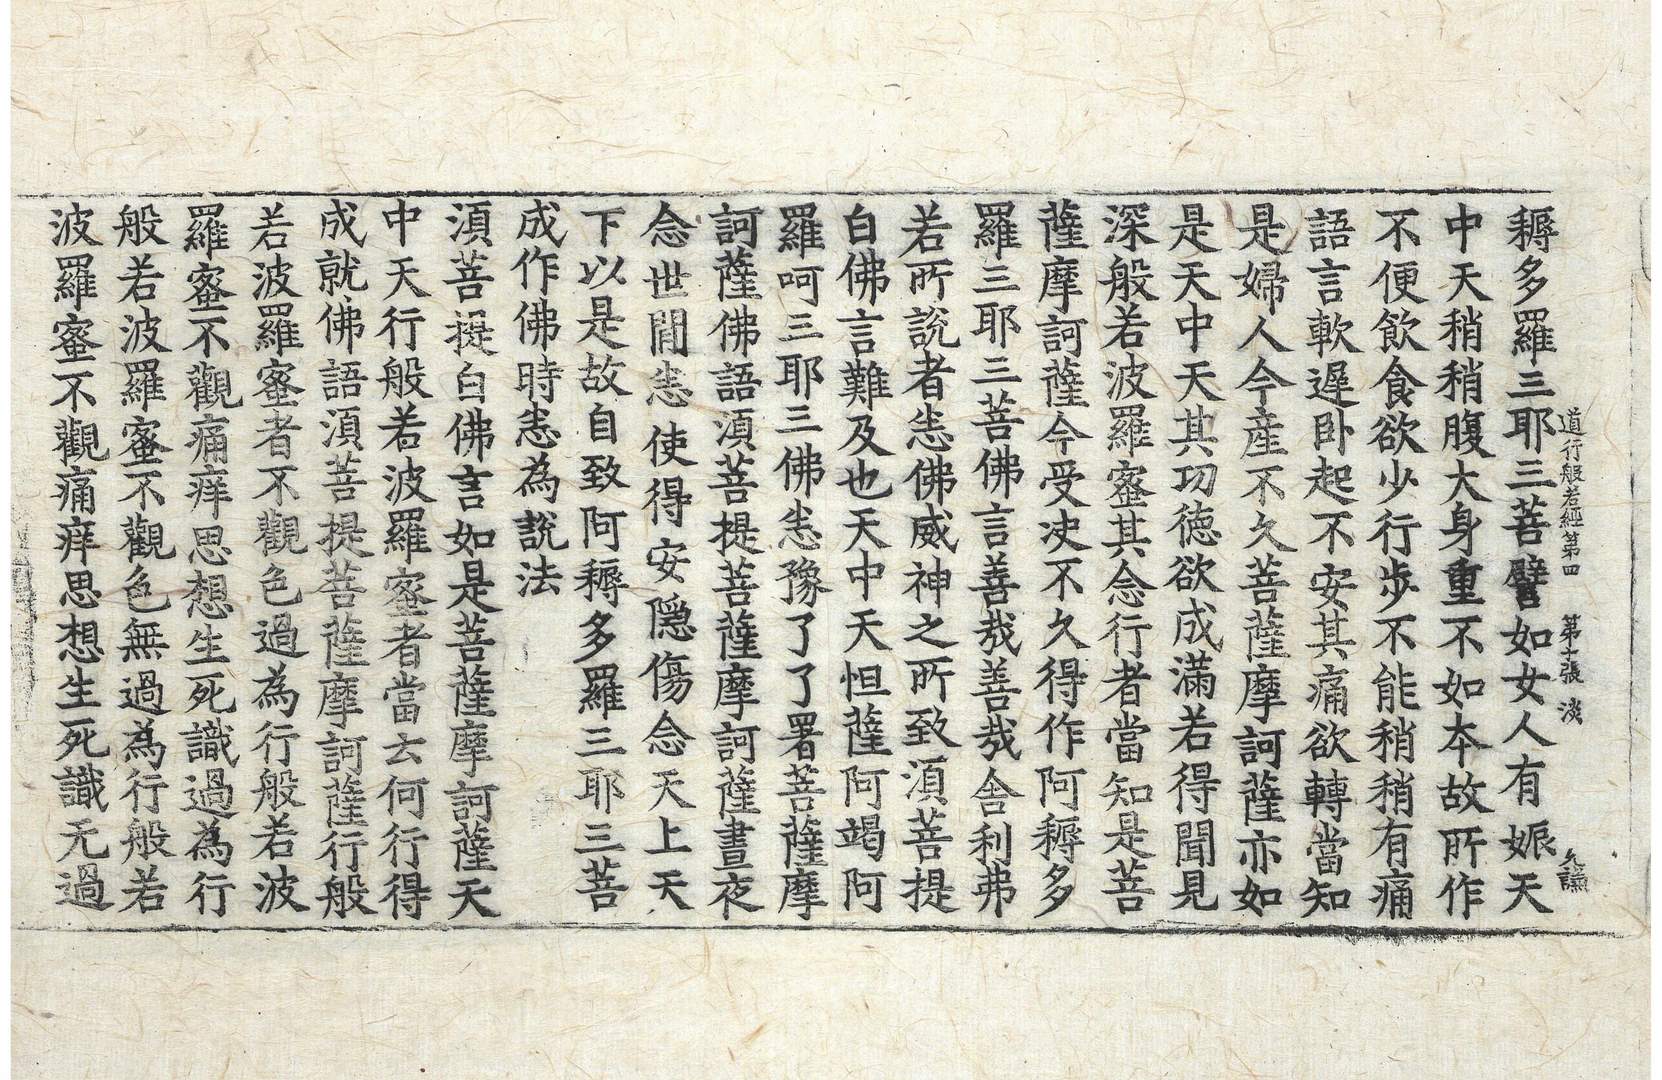 道行般若經第四 第十張 淡
耨多羅三耶三菩譬如女人有娠天
中天稍稍腹大身重不如本故所作
不便飲食欲少行步不能稍稍有痛
語言軟遲卧起不安其痛欲轉當知
是婦人今産不久菩薩摩訶薩亦如
是天中天其功德欲成滿若得聞見
深般若波羅蜜其念行者當知是菩
薩摩訶薩今受決不久得作阿耨多
羅三耶三菩佛言善哉善哉舍利弗
若所說者恙佛威神之所致湏菩提
白佛言難及也天中天怛薩阿竭阿
羅呵三耶三佛恙豫了了署菩薩摩
訶薩佛語湏菩提菩薩摩訶薩晝夜
念世閒恙使得安隱傷念天上天
下以是故自致阿耨多羅三耶三菩
成作佛時恙為說法
湏菩提白佛言如是菩薩摩訶薩天
中天行般若波羅蜜者當云何行得
成就佛語湏菩提菩薩摩訶薩行般
若波羅蜜者不觀色過為行般若波
羅蜜不觀痛痒思想生死識過為行
般若波羅蜜不觀色無過為行般若
波羅蜜不觀痛痒思想生死識无過